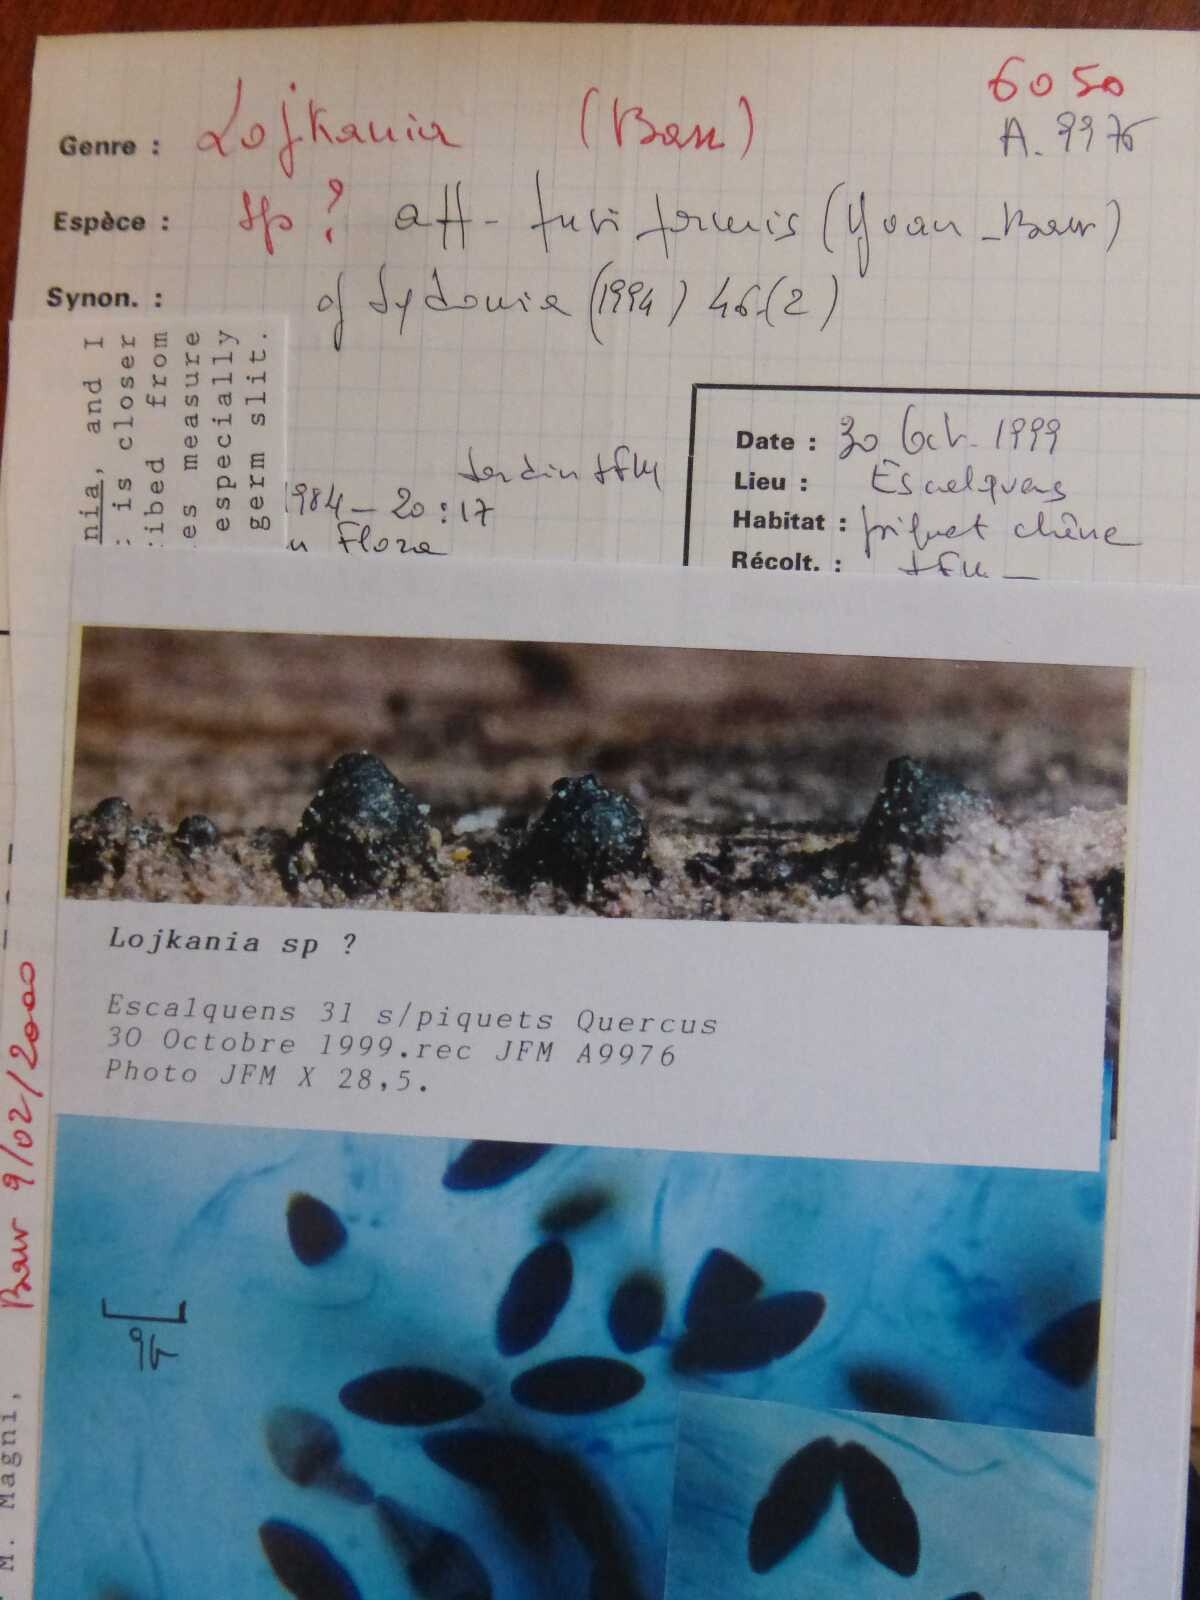 6050
Genre : Lojkania (Barr)
A. 9976
Espèce : sp ? aff - fusiformis (Yvan - Barr)
Synon. : cf Sydowia (1994) 46(2)
nia, and I
is closer
ibed from
es measure
especially
germ slit.
Jardin JFM
1984 - 20:17
Flora
Date : 30 Oct. 1999
Lieu : Escalquens
Habitat : piquet chêne
Récolt. : JFM
Lojkania sp ?
Escalquens 31 s/piquets Quercus
30 Octobre 1999.rec JFM A9976
Photo JFM X 28,5.
Barr 9/02/2000
M. Magni,